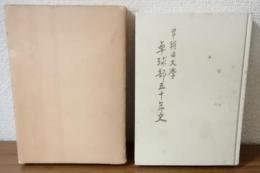 早稲田大学
卓球部五十年史